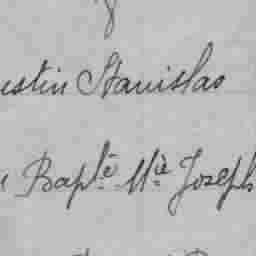 ustin Stanislas
Bapte Mie Joseph